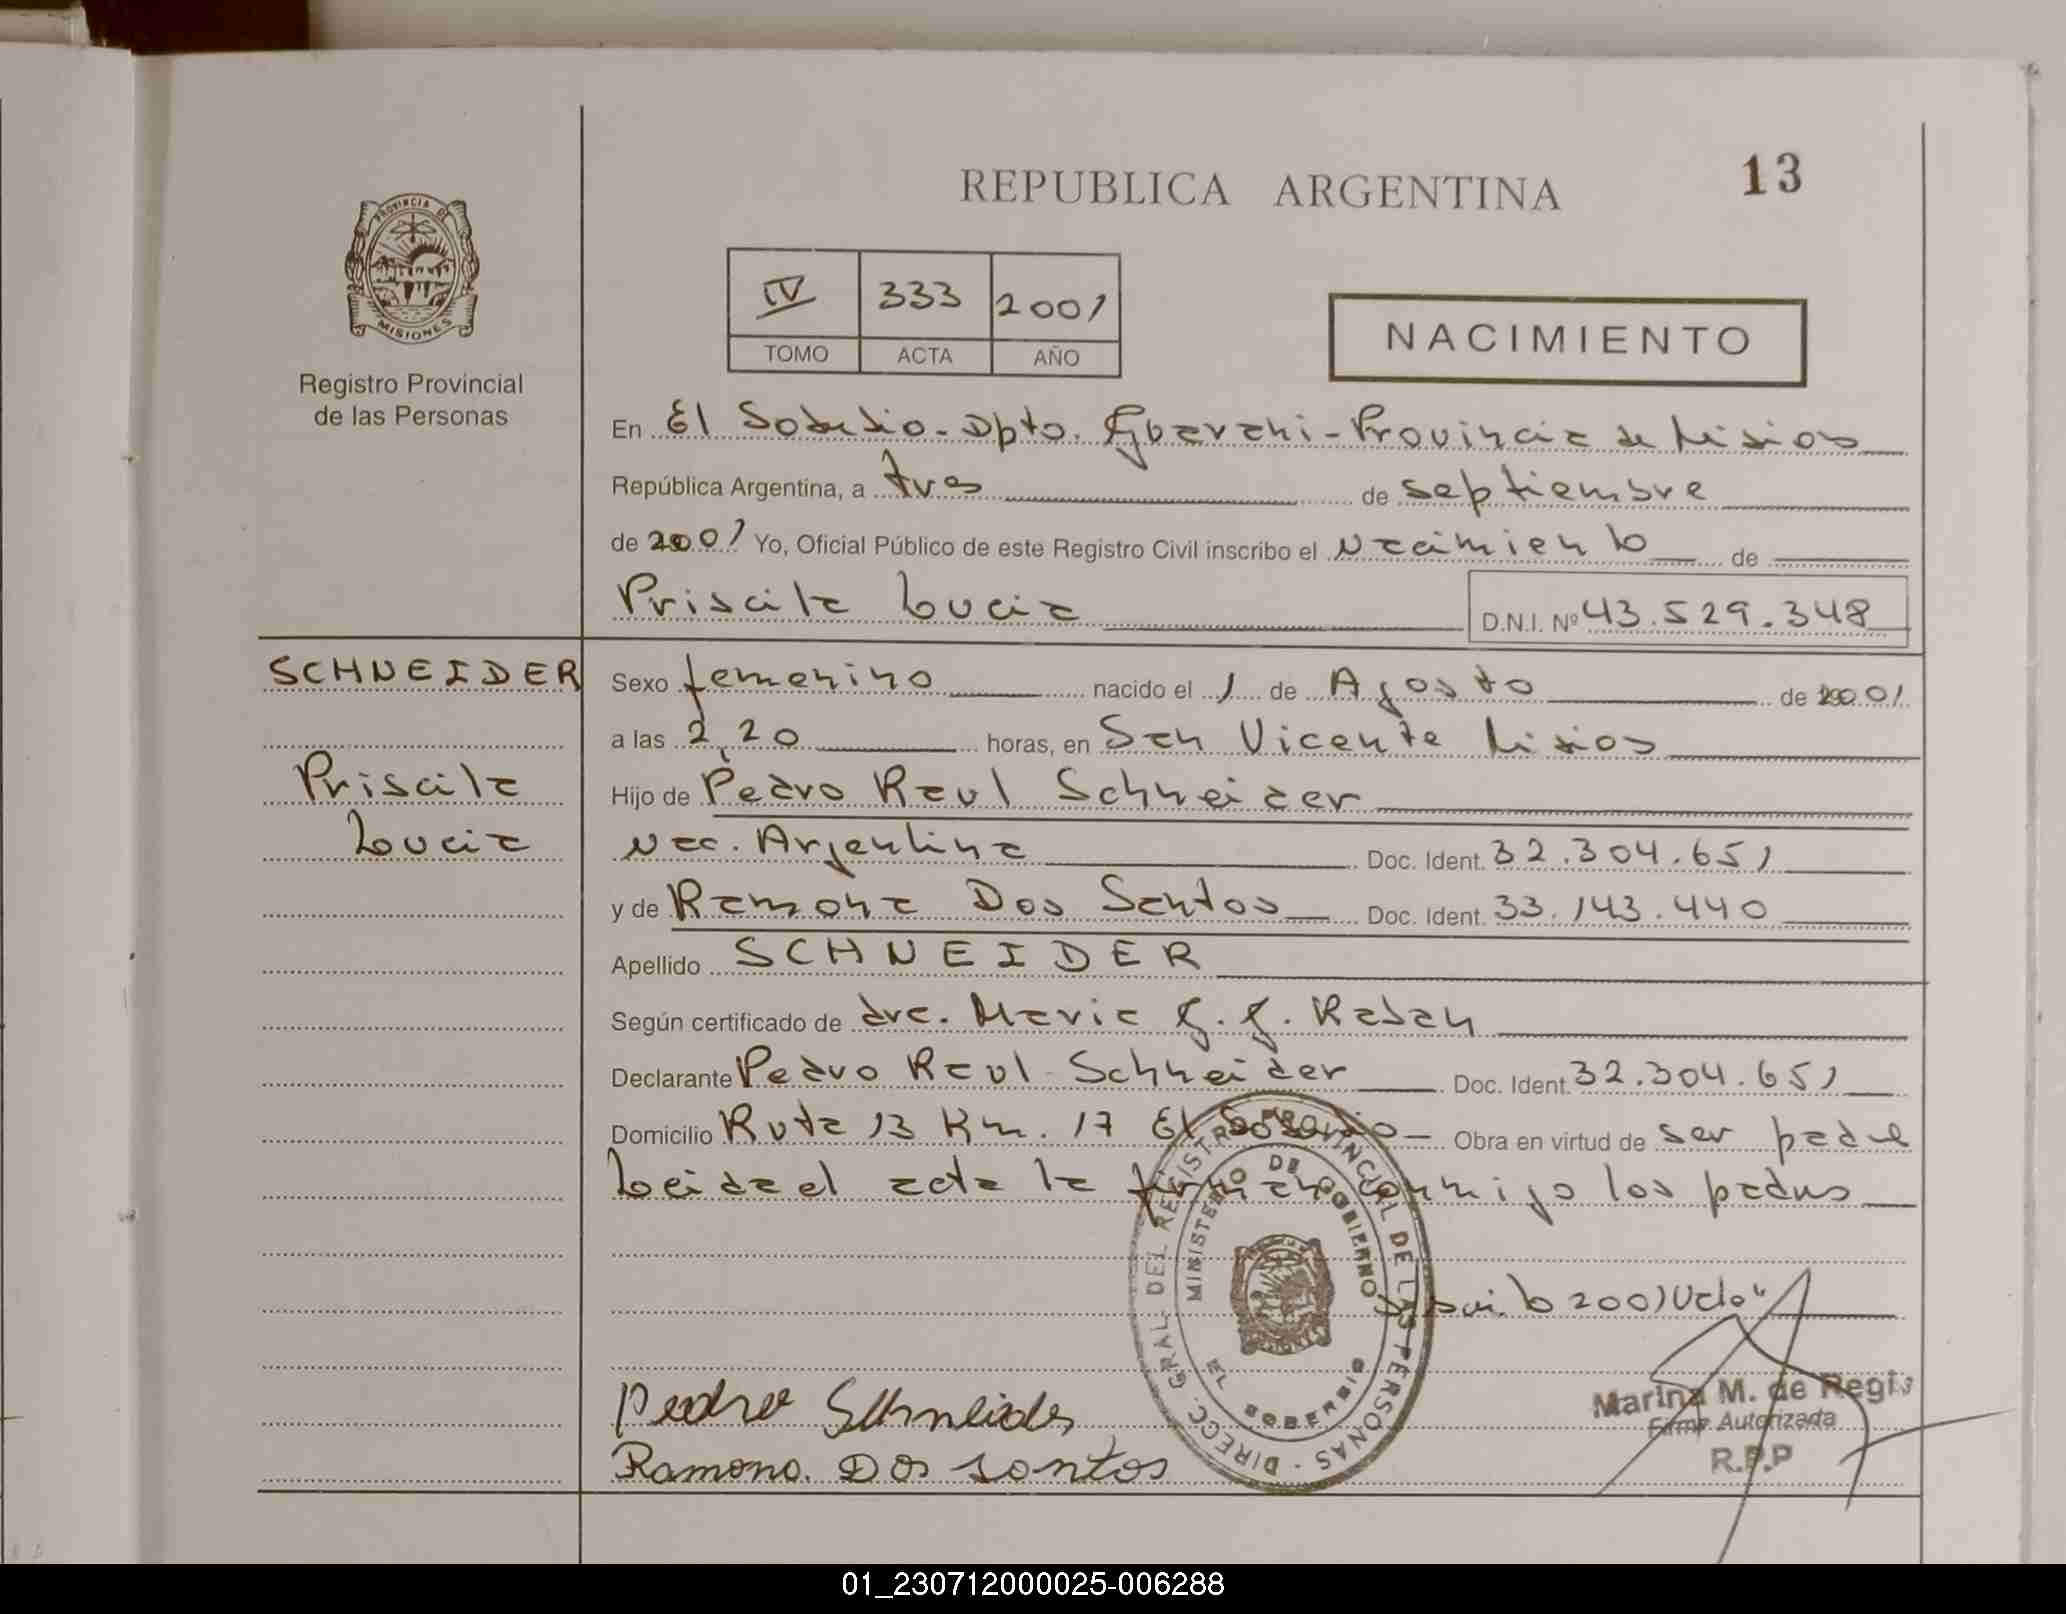 13
REPUBLICA ARGENTINA
PROVINCIA DE
MISIONES
Registro Provincial
de las Personas
IV 333 2001
TOMO ACTA AÑO
NACIMIENTO
En El Soberbio - Dpto. Guarani - Provincia de Misiones
República Argentina, a tres de septiembre
de 2001 Yo, Oficial Público de este Registro Civil inscribo el nacimiento de
Priscila Lucia D.N.I. Nº 43.529.348
SCHNEIDER
Priscila
Lucia
Sexo femenino nacido el 1 de Agosto de 2001
a las 2,20 horas, en San Vicente Misiones
Hijo de Pedro Raul Schneider
Nac. Argentina Doc. Ident. 32.304.651
y de Ramona Dos Santos Doc. Ident. 33.143.440
Apellido SCHNEIDER
Según certificado de dra. Maria G. G. Raban
Declarante Pedro Raul Schneider Doc. Ident. 32.304.651
Domicilio Ruta 13 Km. 17 El Soberbio Obra en virtud de ser padre
Leida el acta la firman conmigo los padres
2001 Vale"
Pedro Schneider
Ramona Dos Santos
DIRECC. GRAL. DEL REGISTRO PROVINCIAL DE LAS PERSONAS
MINISTERIO DE GOBIERNO
EL SOBERBIO
Marina M. de Regis
Firma Autorizada
R.P.P
01_230712000025-006288